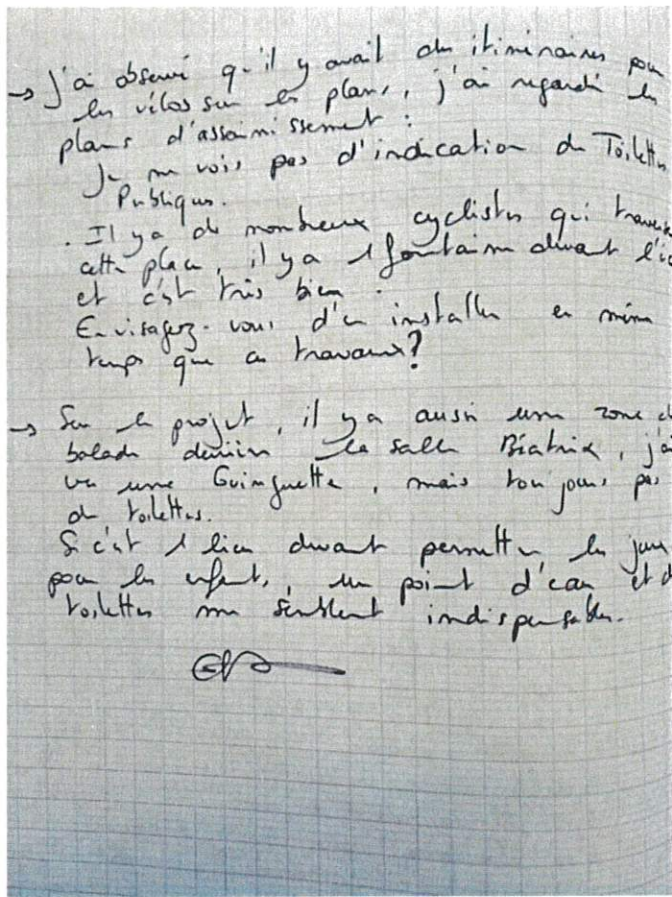 → J'ai observé qu'il y avait des itinéraires pour
les vélos sur les plans, j'ai regardé les
plans d'assainissement :
Je ne vois pas d'indication de Toilettes
Publiques.
. Il y a de nombreux cyclistes qui
cette place, il y a 1 fontaine devant
et c'est très bien.
Envisagez-vous d'en installer en même
temps que ces travaux ?
→ Sur le projet, il y a aussi une zone de
balade derrière la salle Béatrix, j'ai
vu une Guinguette, mais toujours pas
de toilettes.
Si c'est 1 lieu devant permettre les jeux
pour les enfants, un point d'eau et d
toilettes me semblent indispensables.